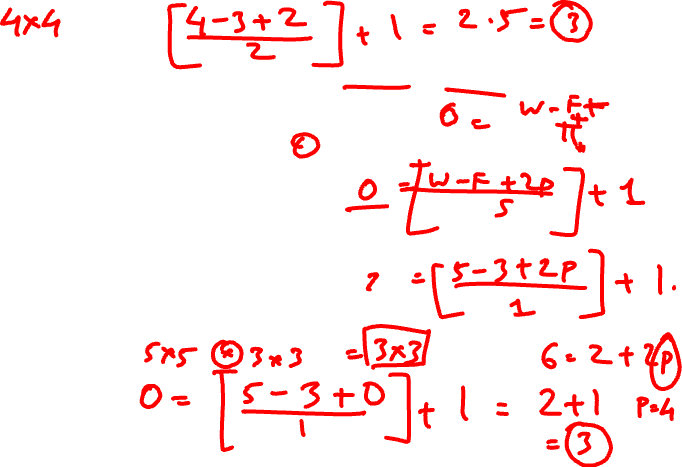 4×4 [4-3+2/2] + 1 = 2.5 = 3
O = W-F+
O = [W-F+2P/S] + 1
? = [5-3+2P/1] + 1.
5×5 * 3×3 = 3×3 6=2+2P
O = [5-3+0/1] + 1 = 2+1 P=4
= 3